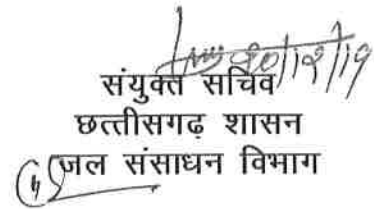 20/12/19
संयुक्त सचिव
छत्तीसगढ़ शासन
जल संसाधन विभाग